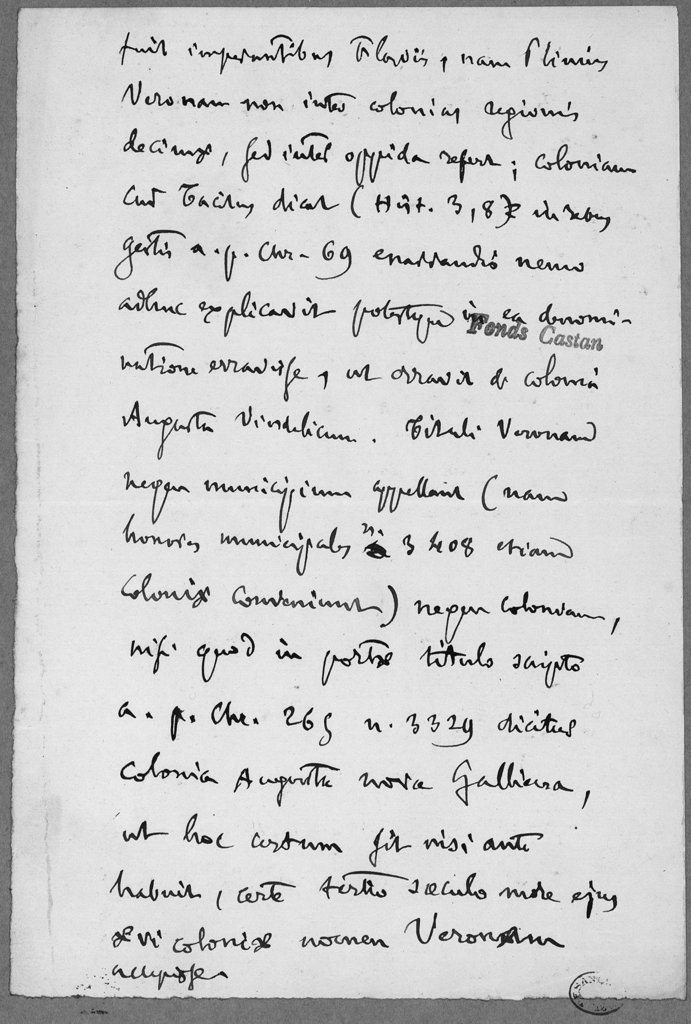 fuit imperantibus Flaviis, nam Plinius
Veronam non inter colonias regionis
decimæ, sed inter oppida refert; coloniam
cum Tacitus dicat (Hist. 3, 8) in rebus
gestis a. p. Chr. 69 enarrandis nemo
adhuc explicavit potestque in ea denomi-
Fonds Castan
natione erravisse, ut erravit de colonia
Augusta Vindelicum. Tituli Veronam
neque municipium appellant (nam
honores municipales n. 3408 etiam
coloniæ conveniunt) neque coloniam,
nisi quod in portæ titulo scripto
a. p. Chr. 265 n. 3329 dicitur
colonia Augusta nova Galliena,
ut hoc certum sit nisi ante
habuit, certe tertio sæculo more ejus
ævi coloniæ nomen Veronam
accepisse.